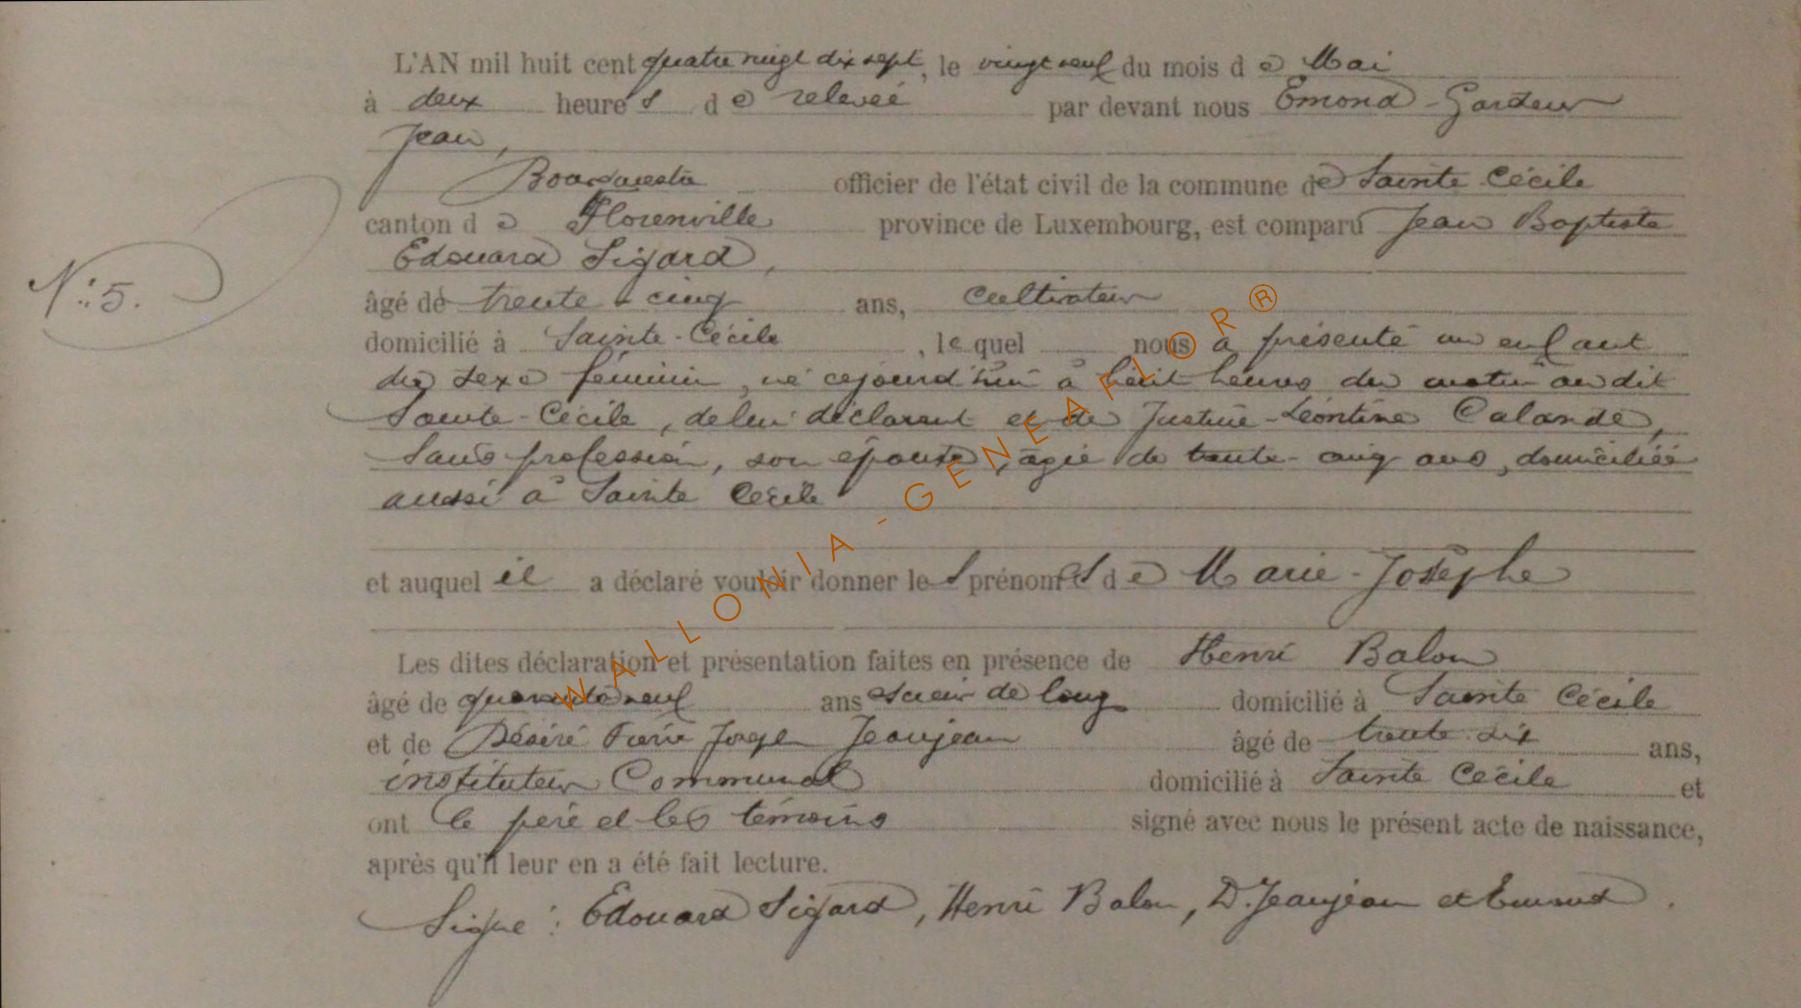 L'AN mil huit cent quatre vingt dix sept, le vingt neuf du mois de Mai
à deux heures de relevée par devant nous Emond-Gardeur
Jean,
Bourgmestre officier de l'état civil de la commune de Sainte Cécile
canton de Florenville province de Luxembourg, est comparu Jean Baptiste
Edouard Sigard,
N° 5.
âgé de trente-cinq ans, cultivateur
domicilié à Sainte-Cécile, lequel nous a présenté un enfant
du sexe féminin, né cejourd'hui à huit heures du matin au dit
Sainte-Cécile, de lui déclarant et de Justine-Léontine Calande,
sans profession, son épouse, âgée de trente-cinq ans, domiciliée
aussi à Sainte Cécile
et auquel il a déclaré vouloir donner les prénoms de Marie-Josèphe
Les dites déclaration et présentation faites en présence de Henri Balon
âgé de quarante neuf ans scieur de long domicilié à Sainte Cécile
et de Désiré Pierre Joseph Jeanjean âgé de trente six ans,
instituteur Communal domicilié à Sainte Cécile et
ont le père et les témoins signé avec nous le présent acte de naissance,
après qu'il leur en a été fait lecture.
Signé : Edouard Sigard, Henri Balon, D. Jeanjean et Emond.
WALLONIA-GENEAFLOR®